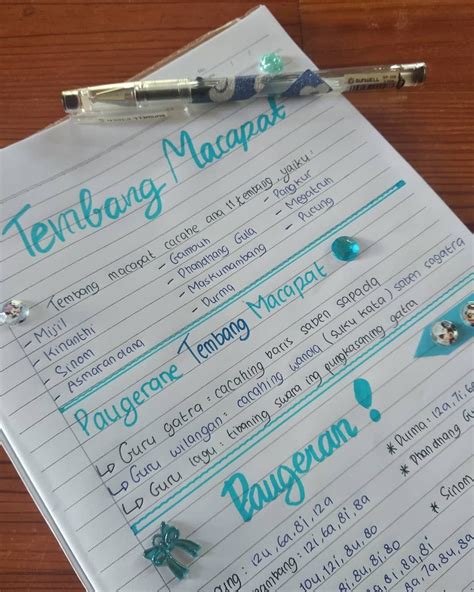 Tembang Macapat
Tembang macapat cacahe ana 11 tembang, yaiku
- Mijil
- Kinanthi
- Sinom
- Asmarandana
- Gambuh
- Dhandhang Gula
- Maskumambang
- Durma
- Pangkur
- Megatruh
- Pucung
Paugerane Tembang Macapat
Guru gatra : cacahing baris saben sapada
Guru wilangan : cacahing wanda (suku kata) saben sagatra
Guru lagu : tibaning swara ing pungkasaning gatra
Paugeran!
ung : 12u, 6a, 8i, 12a
ambang : 12i, 6a, 8i, 8a
10u, 12i, 8u, 8o
* Durma : 12a, 7i,
* Dhandhang G
* Sinom